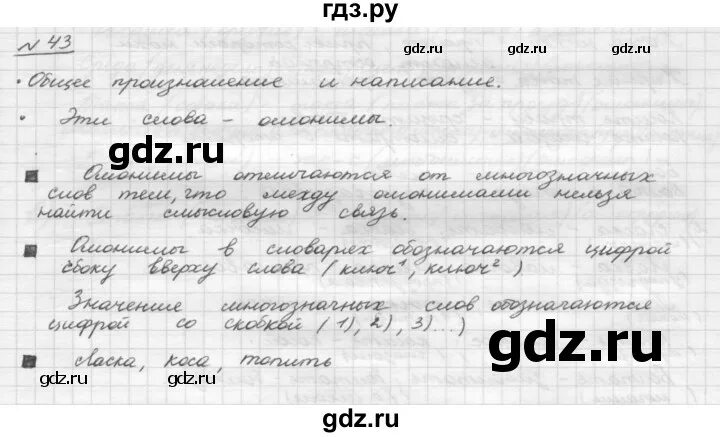 гдз.ру
№ 43
• Общее произношение и написание.
• Эти слова - омонимы.
gdz.ru gdz.ru
Омонимы отличаются от многозначных
слов тем, что между омонимами нельзя
найти смысловую связь.
Омонимы в словарях обозначаются цифрой
сбоку вверху слова (ключ¹, ключ²)
Значение многозначных слов обозначаются
цифрой со скобкой (1), 2), 3)...)
gdz.ru
Ласка, коса, топить
gdz.ru gdz.ru
gdz.ru